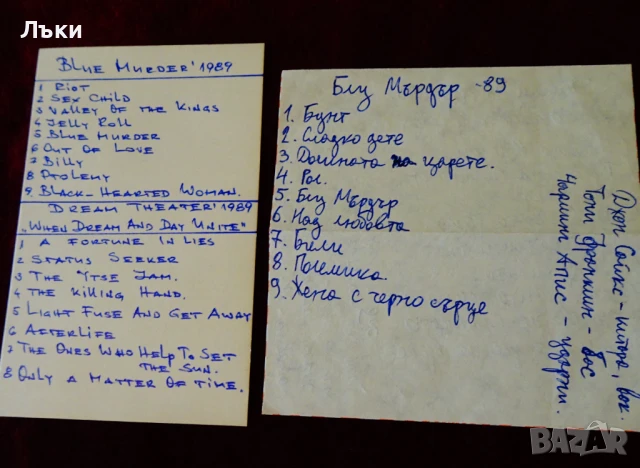 Лъки
BLUE MURDER'1989
1 RIOT
2 SEX CHILD
3 VALLEY OF THE KINGS
4 JELLY ROLL
5 BLUE MURDER
6 OUT OF LOVE
7 BILLY
8 PTOLEMY
9. BLACK-HEARTED WOMAN.
DREAM THEATER'1989
„WHEN DREAM AND DAY UNITE"
1 A FORTUNE IN LIES
2 STATUS SEEKER
3 THE YTSE JAM.
4 THE KILLING HAND.
5 LIGHT FUSE AND GET AWAY
6 AFTERLIFE
7 THE ONES WHO HELP TO SET
THE SUN.
8 ONLY A MATTER OF TIME.
Блу Мърдър -89
1. Бунт
2. Сладко дете
3. Долината на царете.
4. Рол.
5. Блу Мърдър
6. Над любовта
7. Били
8. Полемика.
9. Жена с черно сърце
Джон Сайкс - китара, вок.
Тони Френклин - бас
Кармине Апис - ударни.
BAZAR